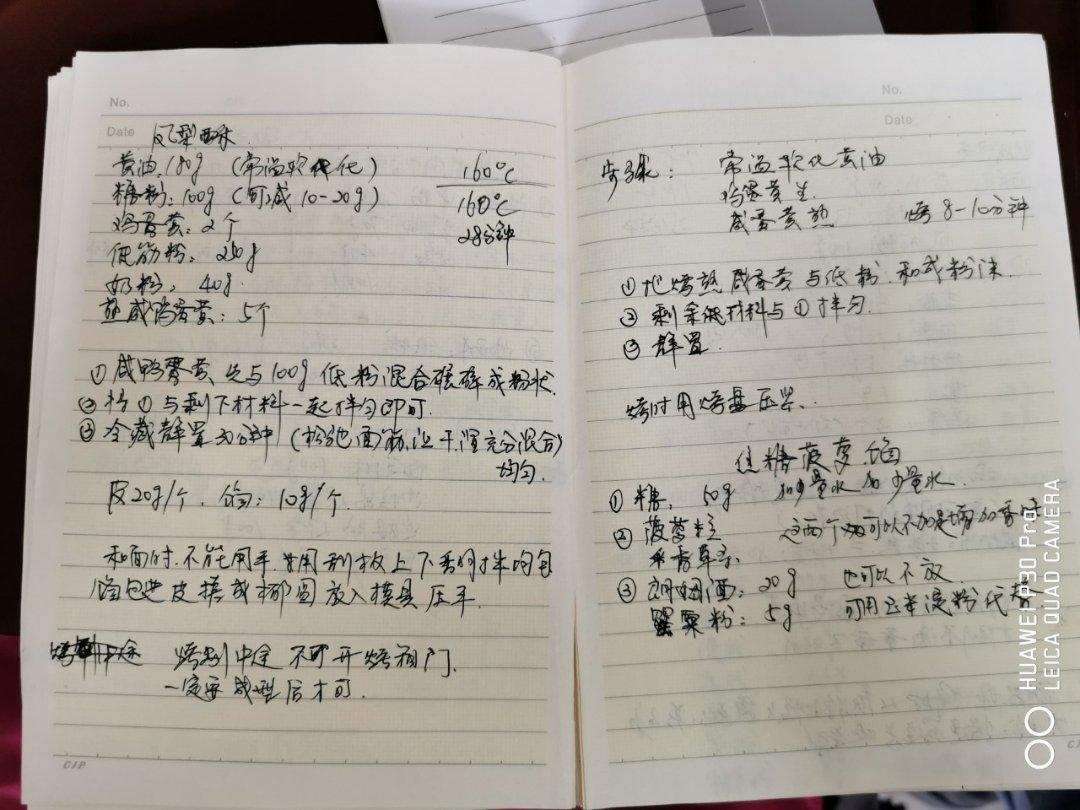 No.
Date 凤梨酥
黄油 180g (常温软化)
糖粉:100g (可减10-20g)
鸡蛋黄:2个
低筋粉:
奶粉:40g
熟咸鸭蛋黄:5个
160℃
160℃
28分钟
① 咸鸭蛋黄先与100g低粉混合碾碎成粉状
② 将①与剩下材料一起拌匀即可.
③ 冷藏静置30分钟 (松弛面筋,让干湿充分混合)
均匀.
皮20g/个. 馅:10g/个.
和面时.不能用手.要用刮板上下叠的拌均匀
馅包进皮搓成椭圆放入模具压平.
中途 烤制中途不可开烤箱门.
一定要成型后才可.
CJP
No.
Date
步骤: 常温软化黄油
鸡蛋黄生
咸蛋黄熟 烤8-10分钟
① 把烤熟咸蛋黄与低粉.和成粉沫.
② 剩余低材料与①拌匀.
③ 静置.
烤时用烤盘压紧.
焦糖菠萝馅
① 糖. 50g 加少量水 加少量水.
② 菠萝粒 这两个可以不加是增加香味
香草
③ 朗姆酒:20g 也可以不放.
粟粉:5g 可用玉米淀粉代替
HUAWEI P30 Pro
LEICA QUAD CAMERA